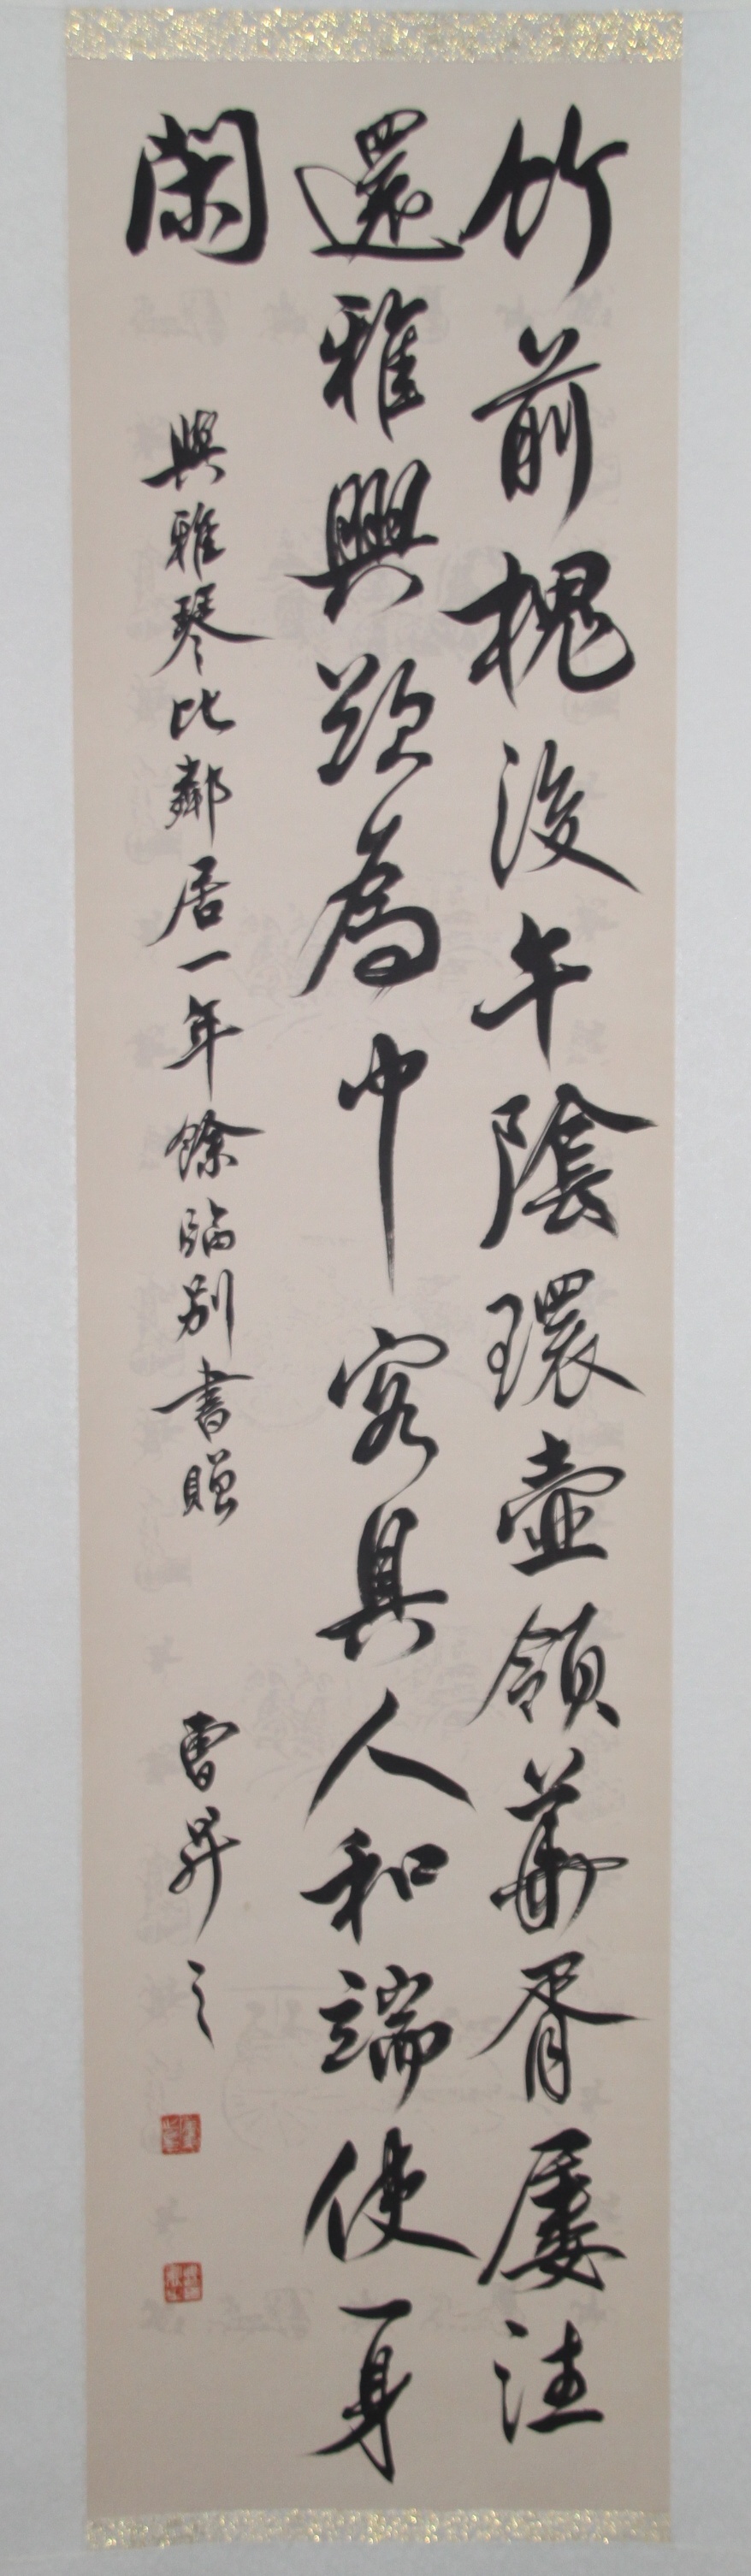 竹前槐後午陰環壺領華胥屢往
還雅興欲為中客具人和端使一身
閑
與雅琴比鄰居一年餘臨別書贈 曹昇之